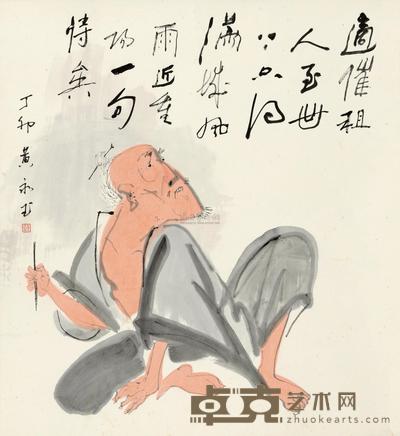 適催租
人至
得
滿城風
雨近重
陽一句
矣
丁卯 黄永玉
卓克艺术网
zhuokearts.com